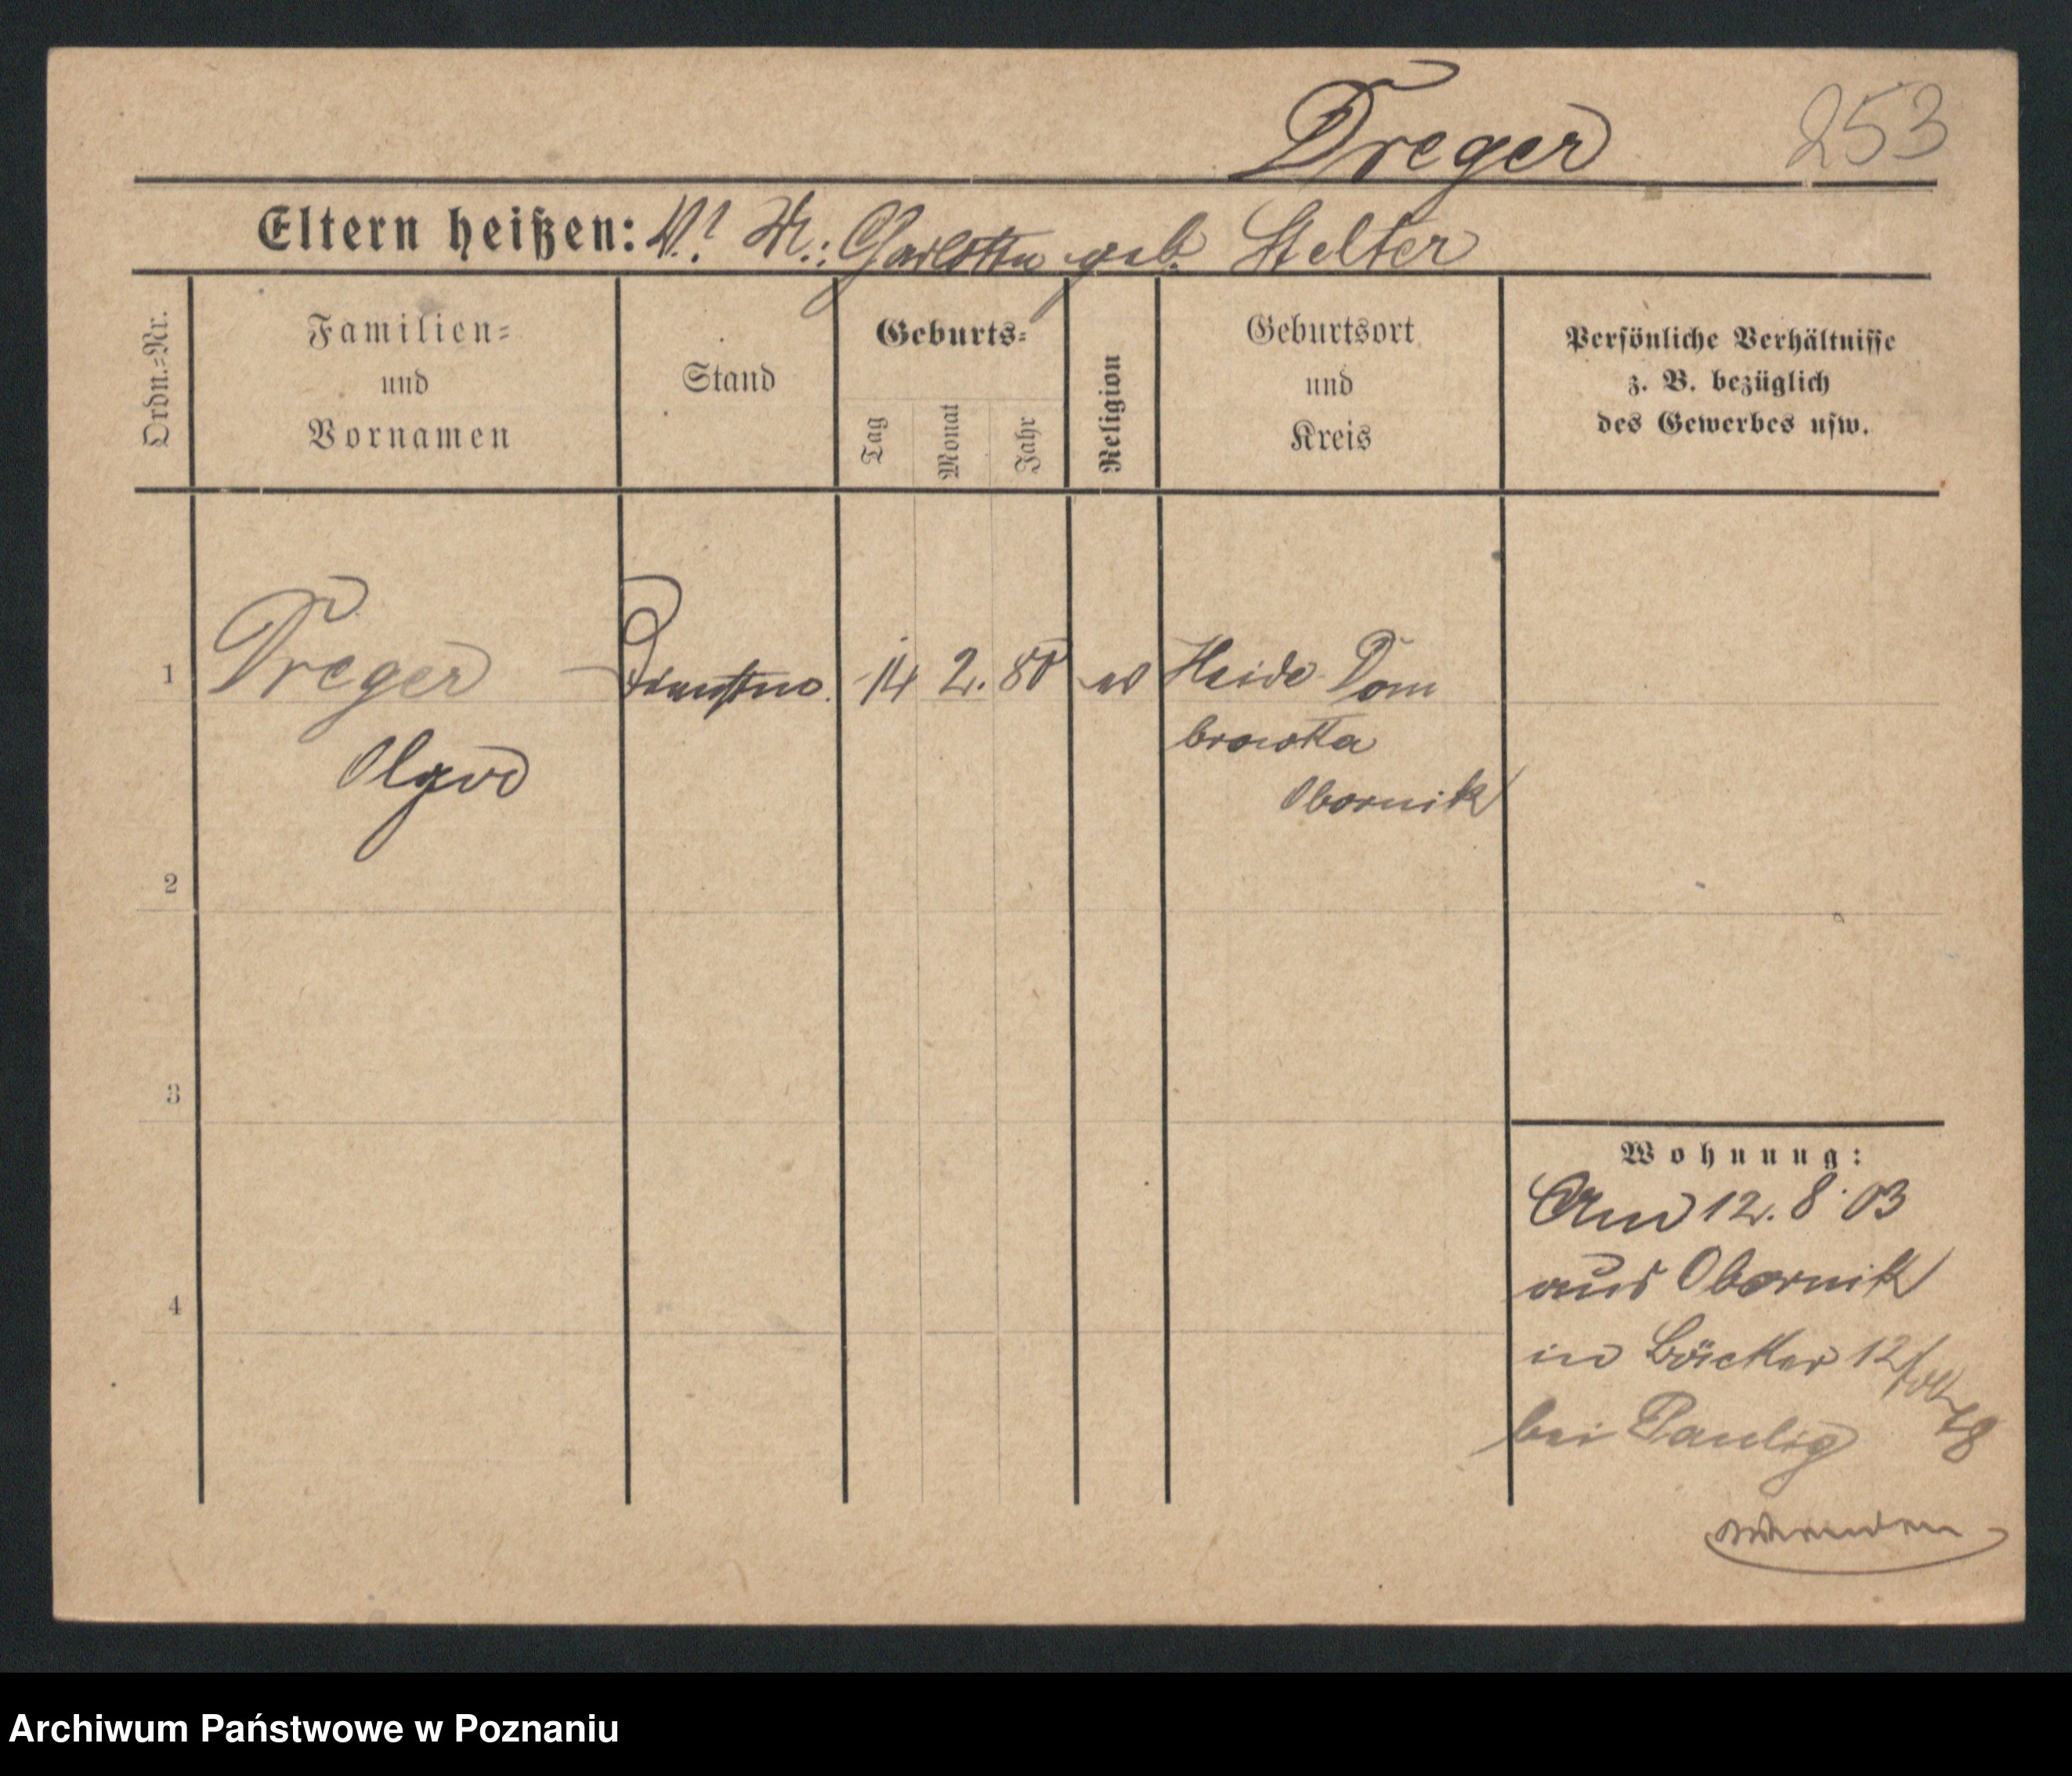 Dreger 253
Eltern heißen: V.? M.: Charlotte geb. Stelter
Ordn.=Nr.
Familien=
und
Vornamen
Stand
Geburts=
Tag
Monat
Jahr
Religion
Geburtsort
und
Kreis
Persönliche Verhältnisse
z. B. bezüglich
des Gewerbes usw.
1 Dreger 14 2. 80 ev Heide Dom
browka
Olga
Obornik
2
3
4
Wohnung:
Am 12. 8. 03
aus Obornik
in Bäcker 12
bei Paulig
wenden
Archiwum Państwowe w Poznaniu